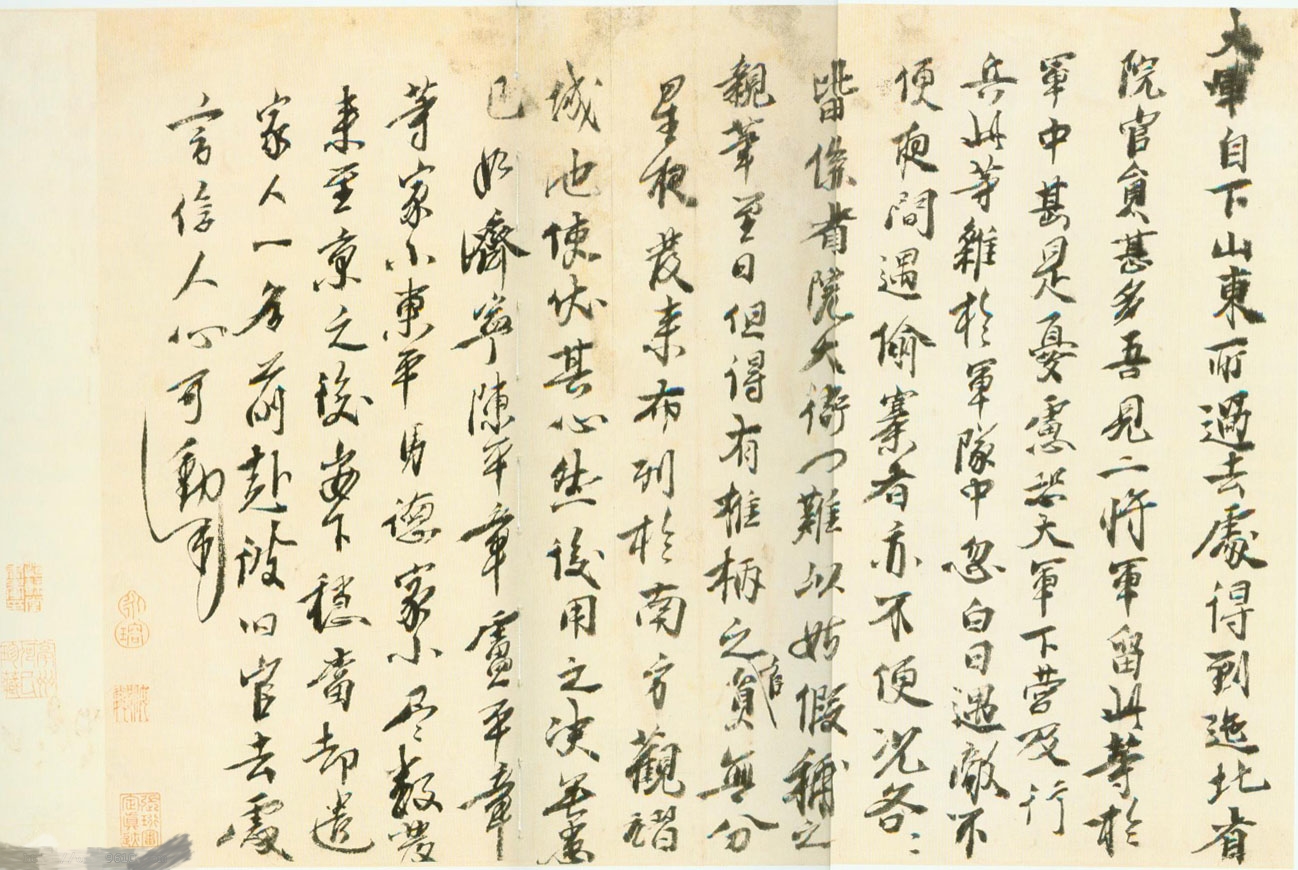 大軍自下山東所過去處得到迤北省
院官員甚多吾見二將軍留此等於
軍中甚是憂慮恐大軍下營及行
兵此等雜於軍隊中忽白日遇敵不
便夜間遇偷寨者亦不便況各々
皆係省院大衙門難以姑假補之
親筆至日但得有椎柄之官員無分
星夜發來布列於南方觀翫
城池使伏其心然後用之決無患
已如濟寧陳平章盧平章
等家小東平馬德家小尽數發
來至京之後安下穩當却遣
家人一名前赴彼旧官去處
言信人心可動耳